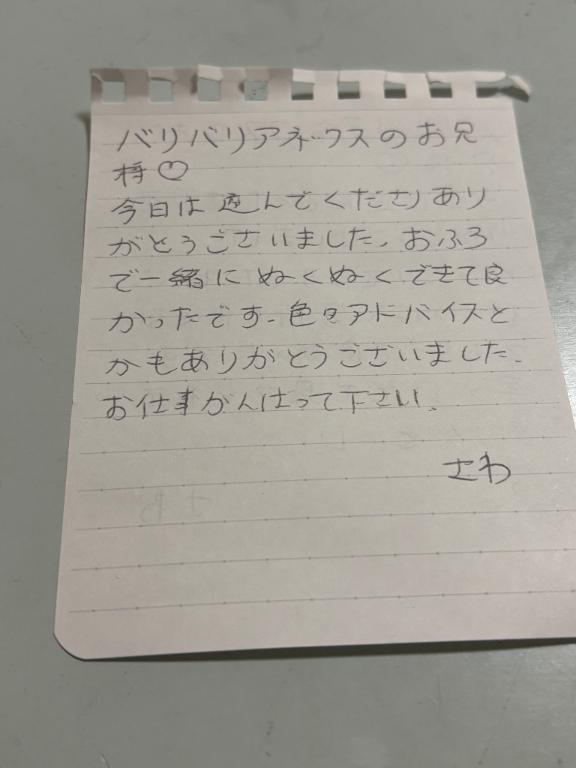 バリバリアネックスのお兄
様♡
今日は遊んでくださりあり
がとうございました。おふろ
で一緒にぬくぬくできて良
かったです。色々アドバイスと
かもありがとうございました。
お仕事がんばって下さい。
さわ